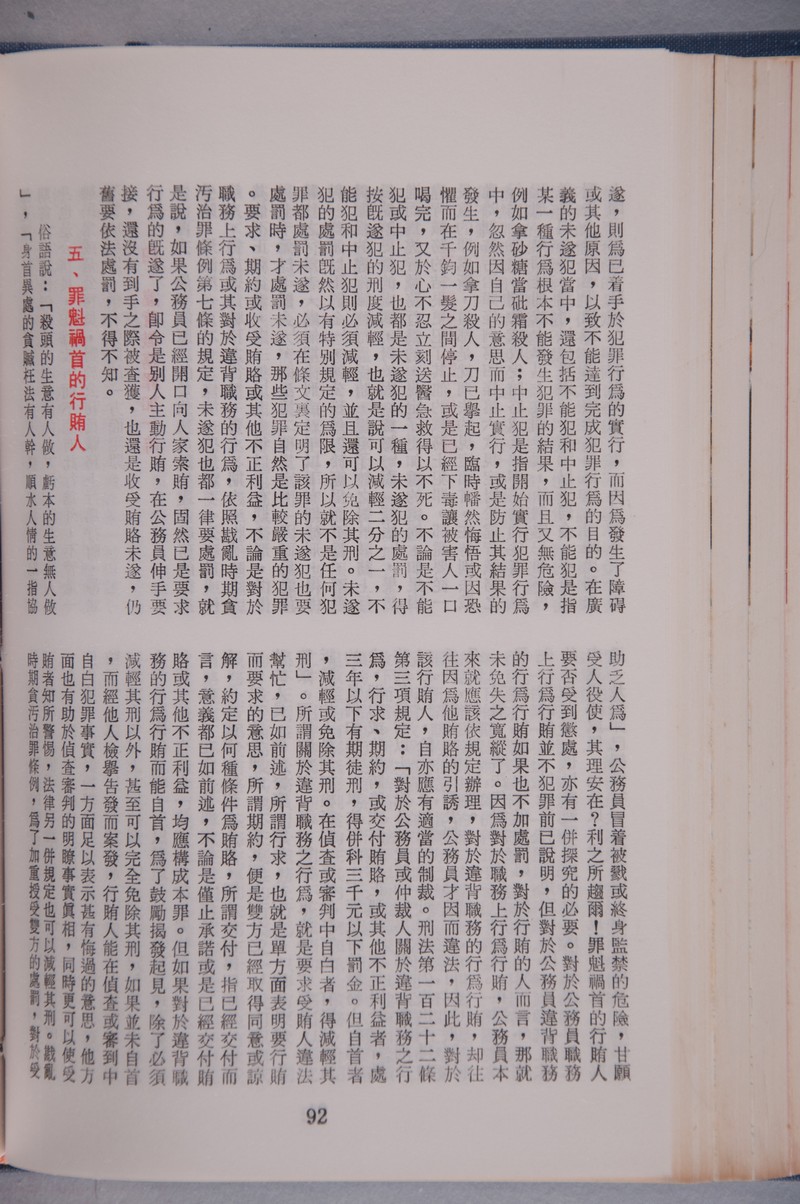 遂，則爲已着手於犯罪行爲的實行，而因爲發生了障碍
或其他原因，以致不能達到完成犯罪行爲的目的。在廣
義的未遂犯當中，還包括不能犯和中止犯，不能犯是指
某一種行爲根本不能發生犯罪的結果，而且又無危險，
例如拿砂糖當砒霜殺人；中止犯是指開始實行犯罪行爲
中，忽然因自己的意思而中止實行，或是防止其結果的
發生，例如拿刀殺人，刀已擧起，臨時幡然悔悟或因恐
懼而在千鈞一髮之間停止，或是已經下毒讓被害人一口
喝完，又於心不忍立刻送醫急救得以不死。不論是不能
犯或中止犯，也都是未遂犯的一種，未遂犯的處罰，得
按旣遂犯的刑度減輕，也就是說可以減輕二分之一，不
能犯和中止犯則必須減輕，並且還可以免除其刑。未遂
犯的處罰旣然以有特別規定的爲限，所以就不是任何犯
罪都處罰未遂，必須在條文裏定明了該罪的未遂犯也要
處罰時，才處罰未遂，那些犯罪自然是比較嚴重的犯罪
。要求、期約或收受賄賂或其他不正利益，不論是對於
職務上行爲或其對於違背職務的行爲，依照戡亂時期貪
汚治罪條例第七條的規定，未遂犯也都一律要處罰，就
是說，如果公務員已經開口向人家索賄，固然已是要求
行爲的旣遂了，卽令是別人主動行賄，在公務員伸手要
接，還沒有到手之際被查獲，也還是收受賄賂未遂，仍
舊要依法處罰，不得不知。
五、罪魁禍首的行賄人
俗語說：「殺頭的生意有人做，虧本的生意無人做
」，「身首異處的貪贓枉法有人幹，順水人情的一指協
助乏人爲」，公務員冒着被戮或終身監禁的危險，甘願
受人役使，其理安在？利之所趨爾！罪魁禍首的行賄人
要否受到懲處，亦有一併探究的必要。對於公務員職務
上行爲行賄並不犯罪前已說明，但對於公務員違背職務
的行爲行賄如果也不加處罰，對於行賄的人而言，那就
未免失之寬縱了。因爲對於職務上行爲行賄，公務員本
來就應該依規定辦理，對於違背職務的行爲行賄，却往
往因爲他賄賂的引誘，公務員才因而違法，因此，對於
該行賄人，自亦應有適當的制裁。刑法第一百二十二條
第三項規定：「對於公務員或仲裁人關於違背職務之行
爲，行求、期約，或交付賄賂，或其他不正利益者，處
三年以下有期徒刑，得併科三千元以下罰金。但自首者
，減輕或免除其刑。在偵查或審判中自白者，得減輕其
刑」。所謂關於違背職務之行爲，就是要求受賄人違法
幫忙，已如前述，所謂行求，也就是單方面表明要行賄
而要求的意思，所謂期約，便是雙方已經取得同意或諒
解，約定以何種條件爲賄賂，所謂交付，指已經交付而
言，意義都已如前述，不論是僅止承諾或是已經交付賄
賂或其他不正利益，均應構成本罪。但如果對於違背職
務的行爲行賄而能自首，爲了鼓勵揭發起見，除了必須
減輕其刑以外，甚至可以完全免除其刑，如果並未自首
，而經他人檢擧告發而案發，行賄人能在偵查或審到中
自白犯罪事實，一方面足以表示甚有悔過的意思，他方
面也有助於偵查審判的明瞭事實眞相，同時更可以使受
賄者知所警惕，法律另一併規定也可以減輕其刑。戡亂
時期貪汚治罪條例，爲了加重授受雙方的處罰，對於受
92